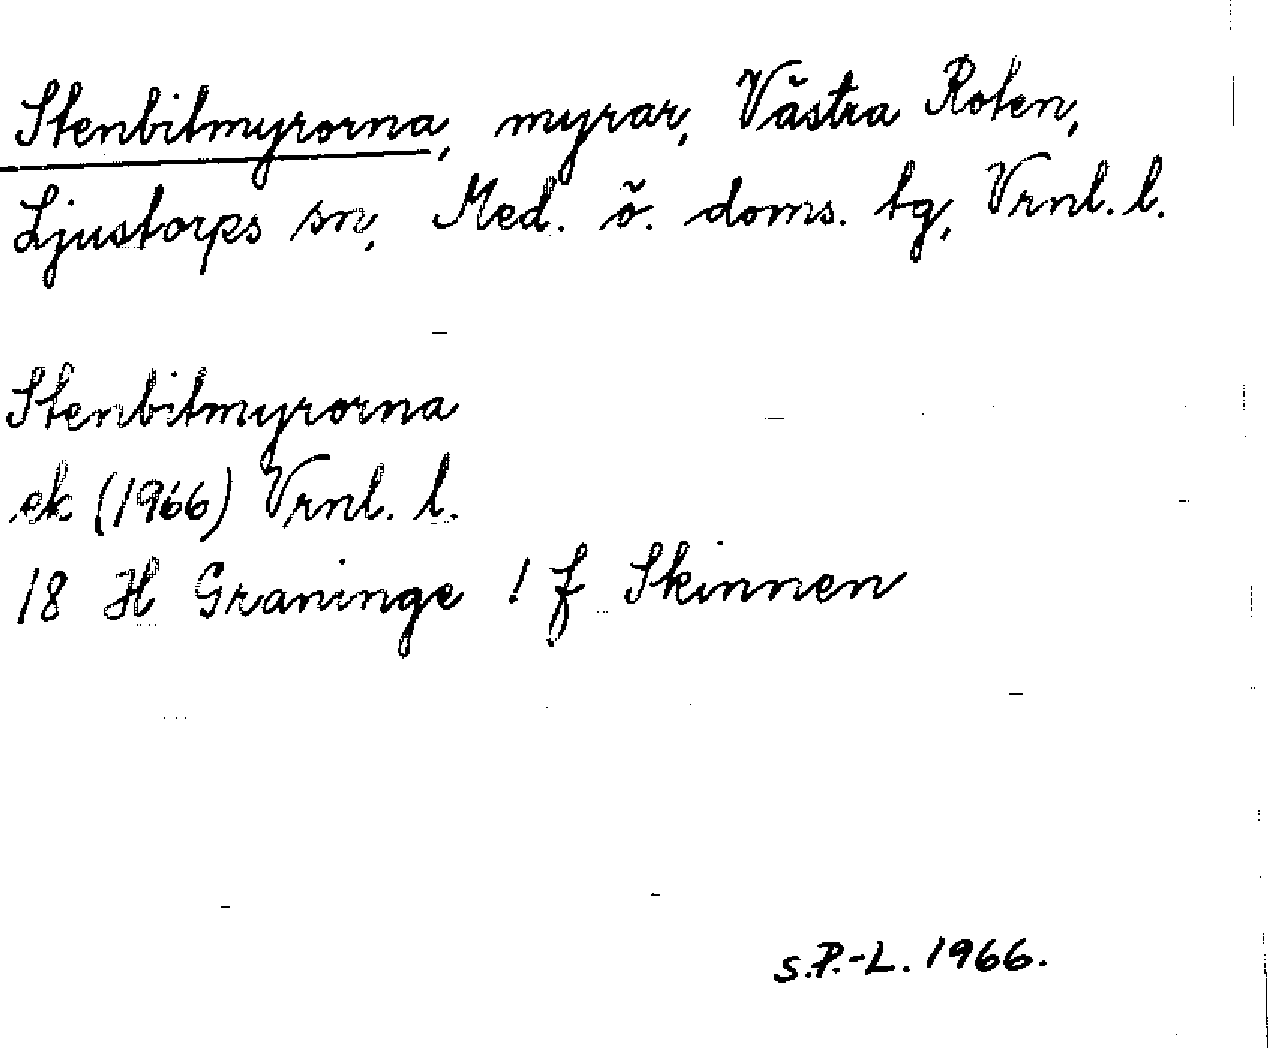 Stenbitmyrorna, myrar, Västra Roten,
Ljustorps sn, Med. ö. doms. tg, Vrnl. l.
Stenbitmyrorna
ek (1966) Vrnl. l.
18 H Graninge ! f Skinnen
S.P.-L. 1966.